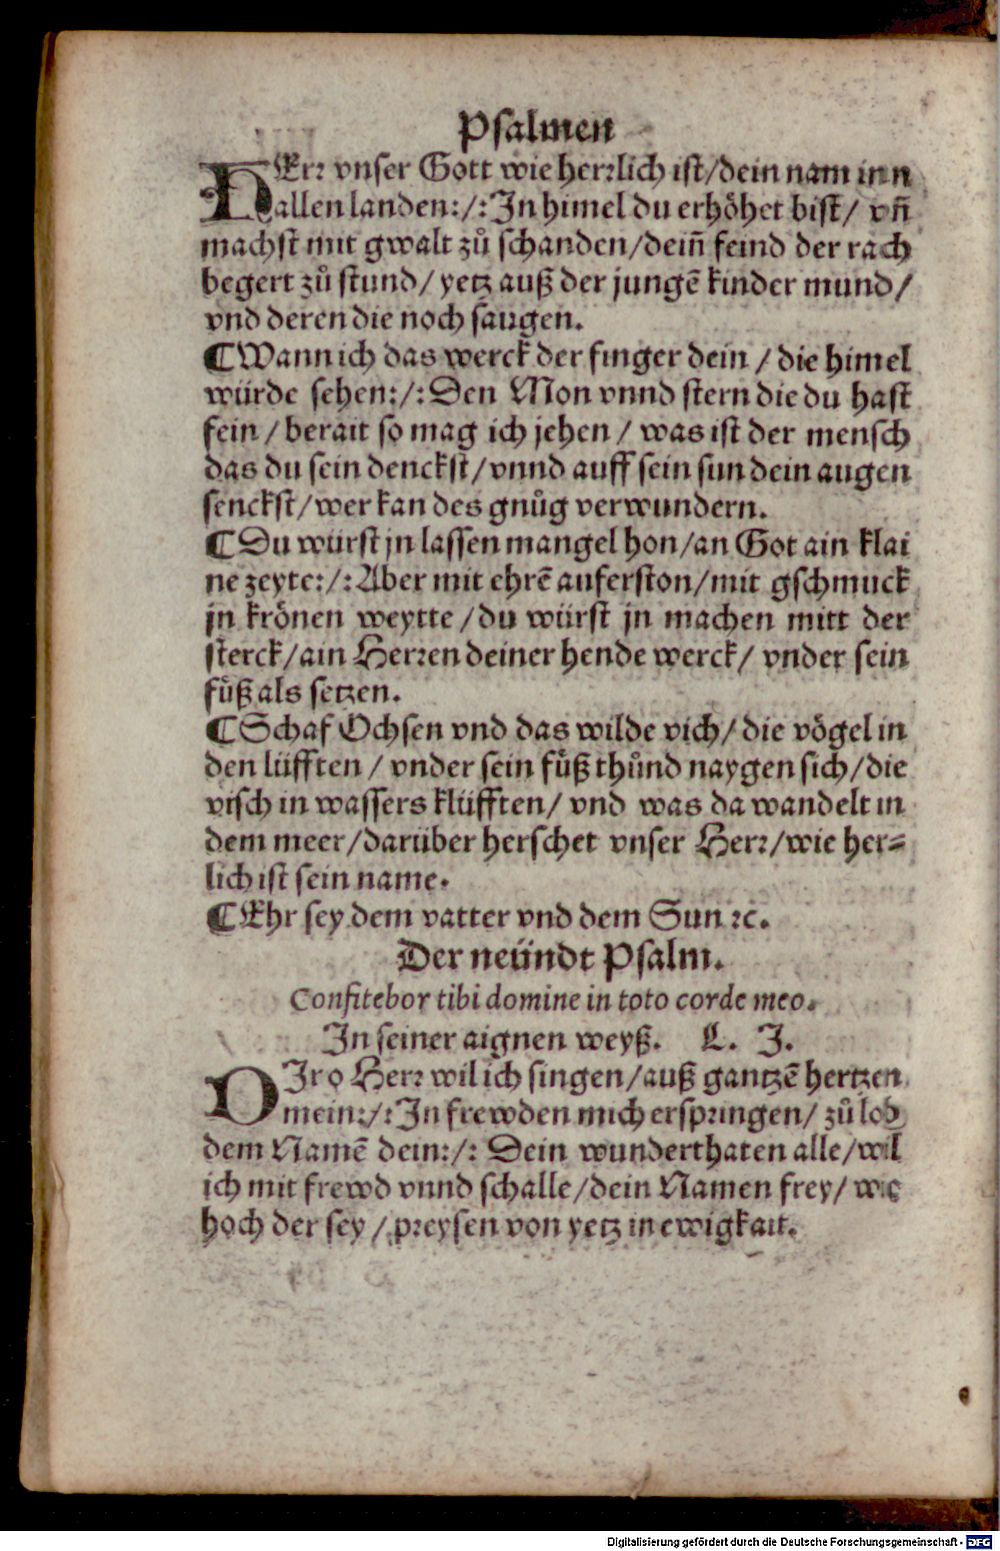 Psalmen
HErr vnser Gott wie herrlich ist/dein nam inn
allen landen:/:In himel du erhöhet bist/ vñ
machst mit gwalt zů schanden/deiñ feind der rach
begert zů stund/ yetz auß der jungẽ kinder mund/
vnd deren die noch saugen.
¶Wann ich das werck der finger dein / die himel
würde sehen:/:Den Mon vnnd stern die du hast
fein / berait so mag ich jehen / was ist der mensch
das du sein denckst/vnnd auff sein sun dein augen
senckst/wer kan des gnůg verwundern.
¶Du würst jn lassen mangel hon/an Got ain klai
ne zeyte:/:Aber mit ehrẽ auferston/mit gschmuck
jn krönen weytte /du würst jn machen mitt der
sterck/ain Herren deiner hende werck/ vnder sein
fůß als setzen.
¶Schaf Ochsen vnd das wilde vich/ die vögel in
den lüfften / vnder sein fůß thůnd naygen sich/die
visch in wassers klüfften/ vnd was da wandelt in
dem meer/darüber herschet vnser Herr/wie her⸗
lich ist sein name.
¶Ehr sey dem vatter vnd dem Sun ꝛc.
Der neündt Psalm.
Confitebor tibi domine in toto corde meo.
In seiner aignen weyß. L. J.
DIr o Herr wil ich singen/auß gantzẽ hertzen
mein:/:In frewden mich erspringen/ zů lob
dem Namẽ dein:/: Dein wunderthaten alle/wil
ich mit frewd vnnd schalle/dein Namen frey/ wie
hoch der sey /preysen von yetz in ewigkait.
Digitalisierung gefördert durch die Deutsche Forschungsgemeinschaft - DFG